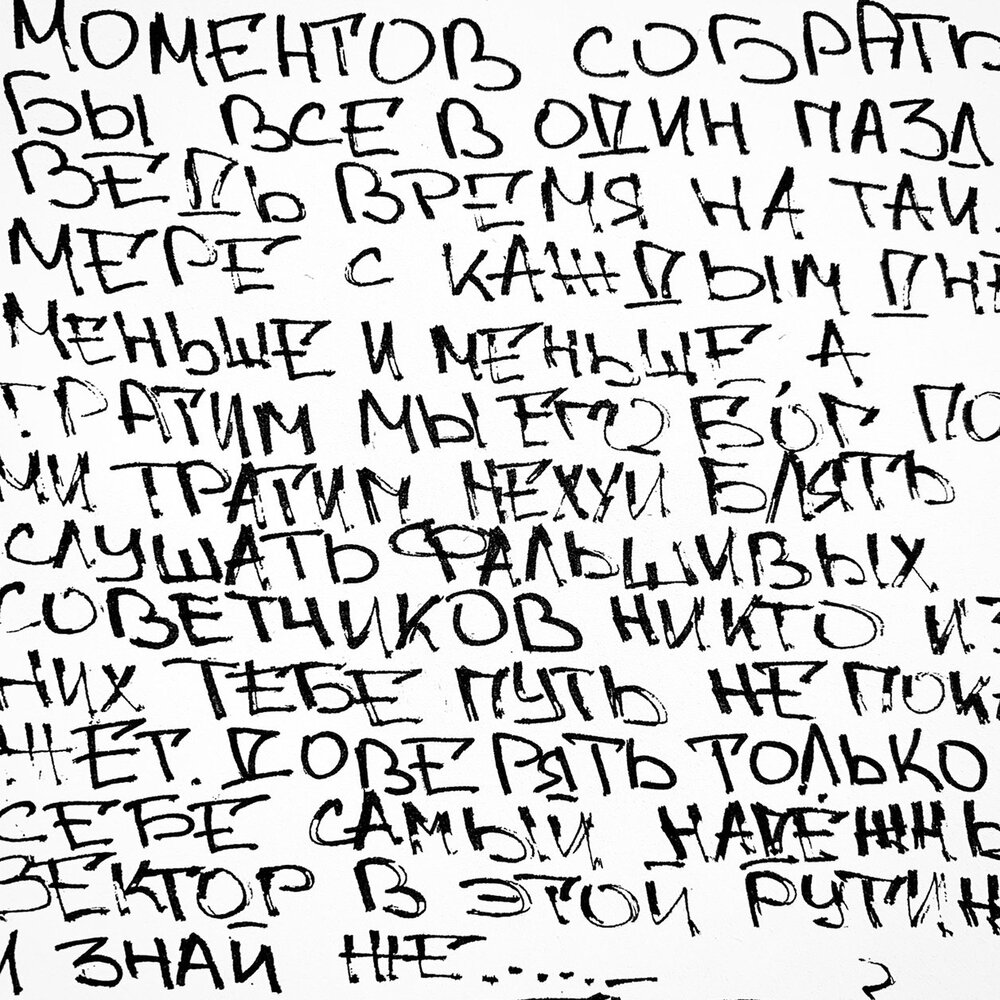 МОМЕНТОВ СОБРАТЬ
БЫ ВСЕ В ОДИН ПАЗЛ
ВЕДЬ ВРЕМЯ НА ТАЙ
МЕРЕ С КАЖДЫМ ДНЕ
МЕНЬШЕ И МЕНЬШЕ А
ТРАТИМ МЫ ЕГО БОГ ПО
МИ ТРАТИМ НЕХУЙ БЛЯТЬ
СЛУШАТЬ ФАЛЬШИВЫХ
СОВЕТЧИКОВ НИКТО ИЗ
НИХ ТЕБЕ ПУТЬ НЕ ПОКА
ЖЕТ. ДОВЕРЯТЬ ТОЛЬКО
СЕБЕ САМЫЙ НАДЁЖНЫ
ВЕКТОР В ЭТОЙ РУТИН
И ЗНАЙ ЖЕ.....